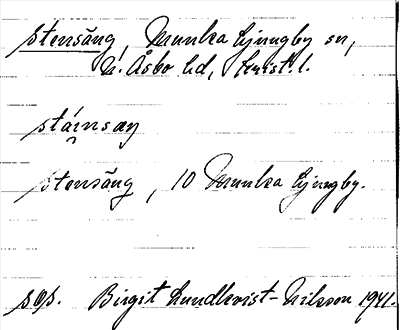 Stensäng, Munka Ljungby sn,
N. Åsbo hd, Krist. l.
stáinsæŋ
Stensäng, 10 Munka Ljungby.
sps. Birgit Lundkvist-Nilsson 1941.